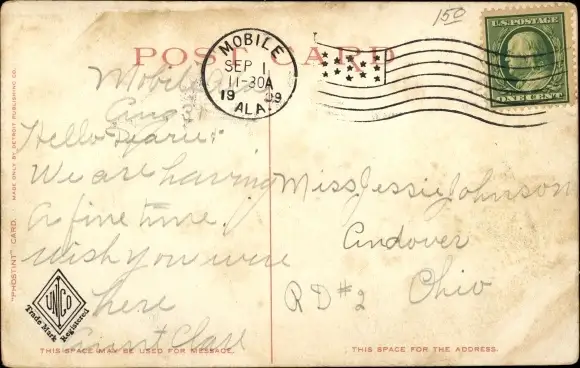 150
POST CARD
U.S. POSTAGE
ONE CENT
MOBILE
SEP 1
11-30A
1909
ALA.
Mobile Ala
Hello Dearie:
We are having
a fine time.
Wish you were
here
Miss Jessie Johnson
Andover
RD #2 Ohio
"PHOSTINT" CARD. MADE ONLY BY DETROIT PUBLISHING CO.
Trade Mark Registered
THIS SPACE MAY BE USED FOR MESSAGE.
THIS SPACE FOR THE ADDRESS.